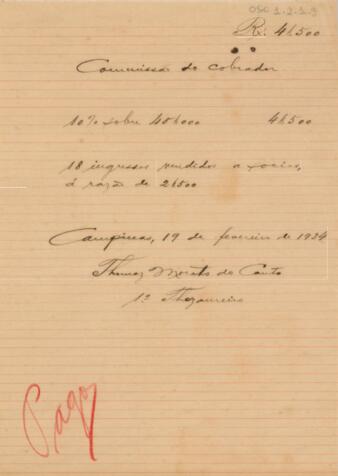 OSC 1.2.1.9
Rs. 4$500
Commissão do cobrador
10% sobre 45$000 4$500
18 ingressos vendidos a socios,
á razão de 2$500
Campinas, 19 de fevereiro de 1934
Thomaz do Canto
1º Thezoureiro
Pago